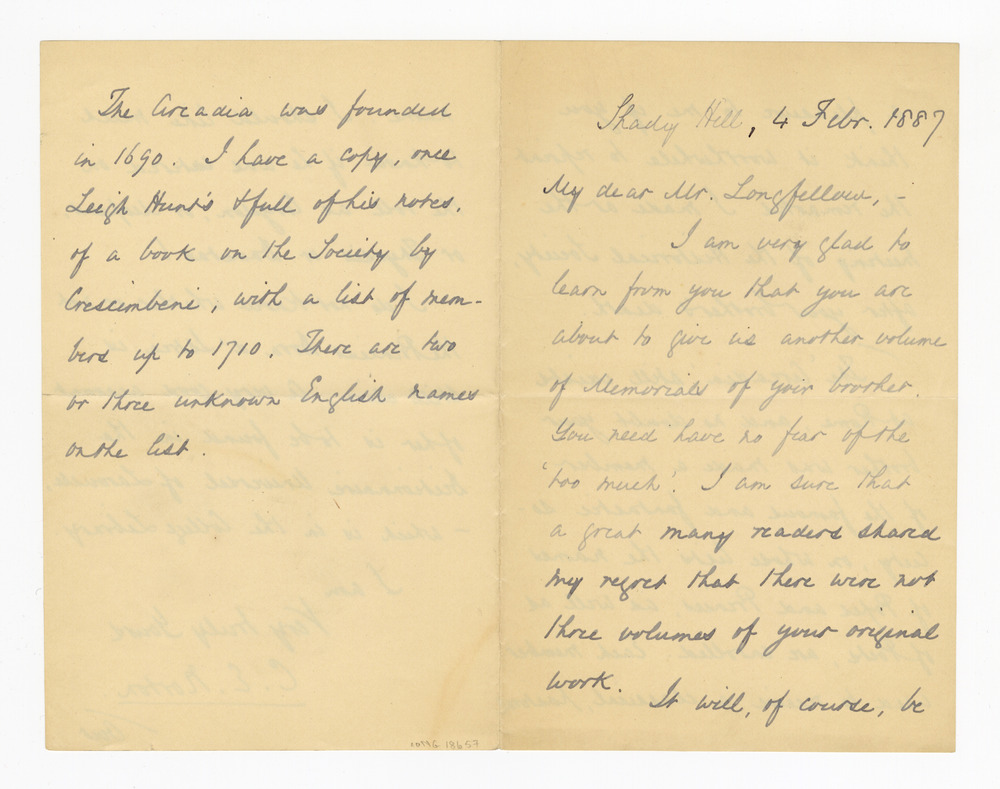 The Arcadia was founded
in 1690. I have a copy, once
Leigh Hunt's & full of his notes,
of a book on the Society by
Crescimbeni, with a list of mem-
bers up to 1710. There are two
or three unknown English names
on the list.
Shady Hill, 4 Febr. 1887
My dear Mr. Longfellow, -
I am very glad to
learn from you that you are
about to give us another volume
of Memorials of your brother.
You need have no fear of the
'too much'. I am sure that
a great many readers shared
my regret that there were not
three volumes of your original
work.
It will, of course, be
18657